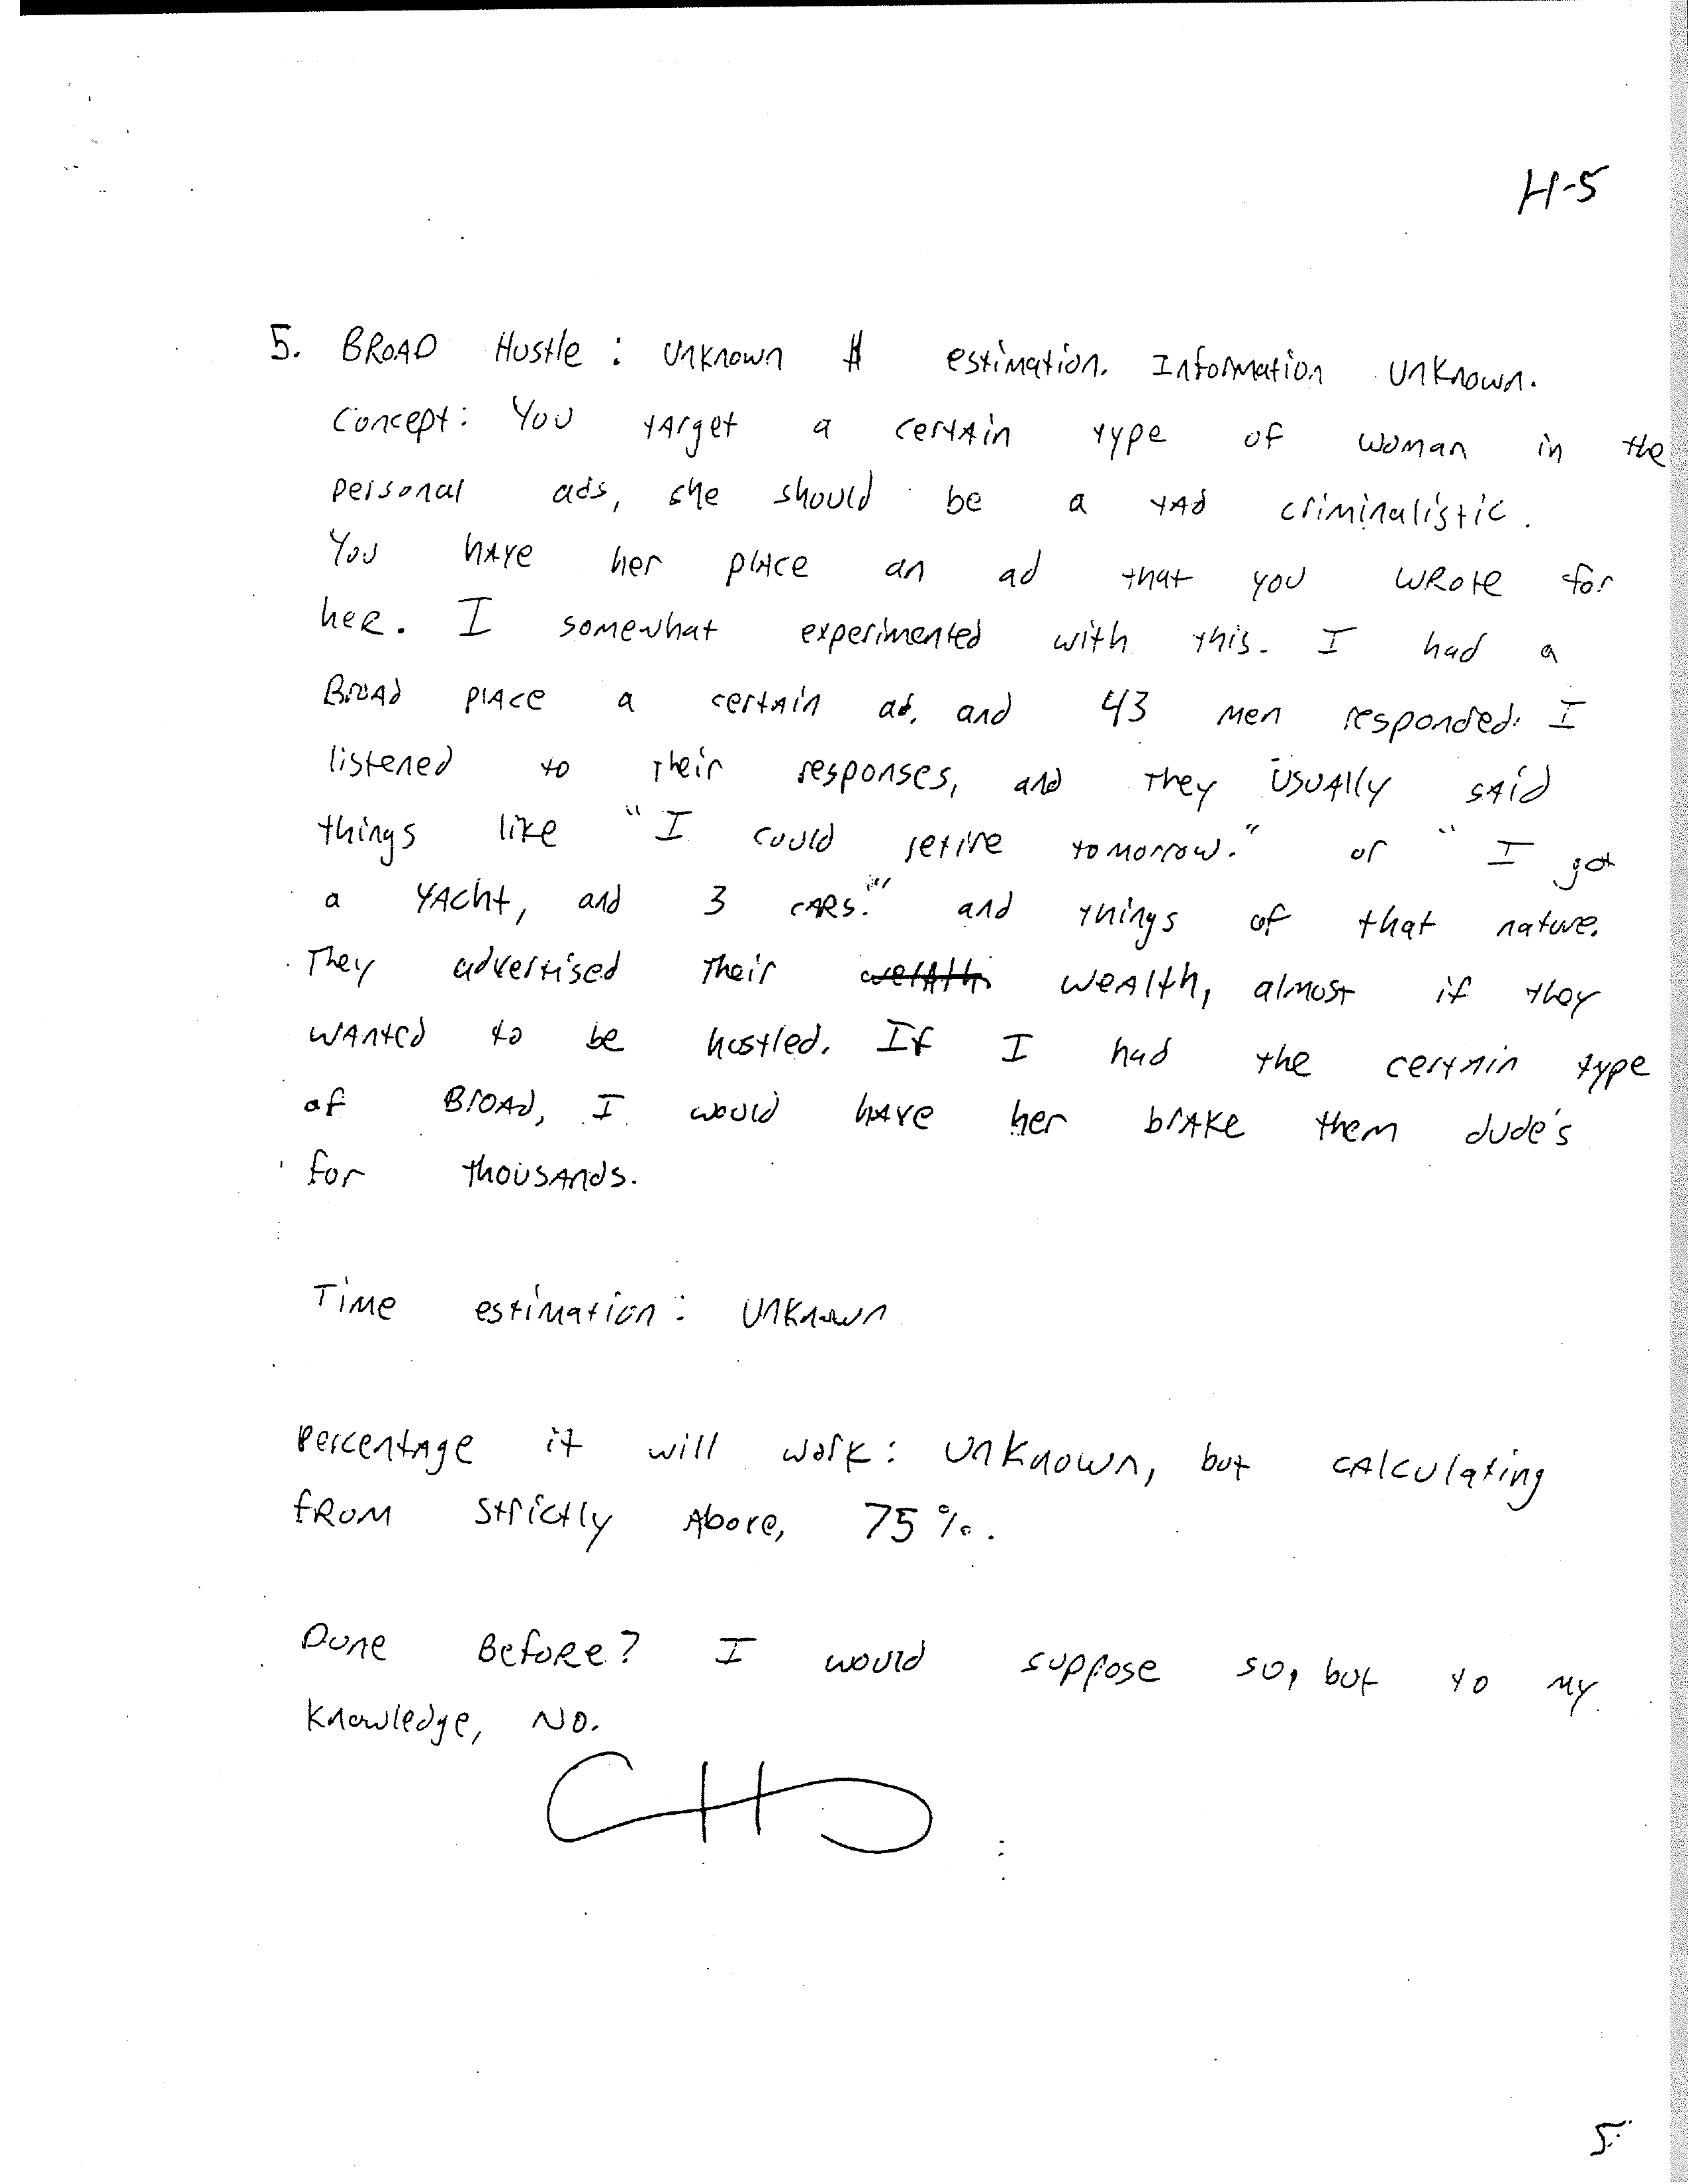 H-5
5. BROAD Hustle : Unknown $ estimation. Information Unknown.
Concept: You target a certain type of woman in the
personal ads, she should be a tad criminalistic.
You have her place an ad that you wrote for
her. I somewhat experimented with this. I had a
Broad place a certain ad, and 43 men responded. I
listened to their responses, and they usually said
things like "I could retire tomorrow." or "I got
a yacht, and 3 cars." and things of that nature.
They advertised their wealth, almost if they
wanted to be hustled. If I had the certain type
of Broad, I would have her brake them dude's
for thousands.
Time estimation: Unknown
Percentage it will work: Unknown, but calculating
from strictly above, 75%.
Done Before? I would suppose so, but to my
knowledge, No.
5